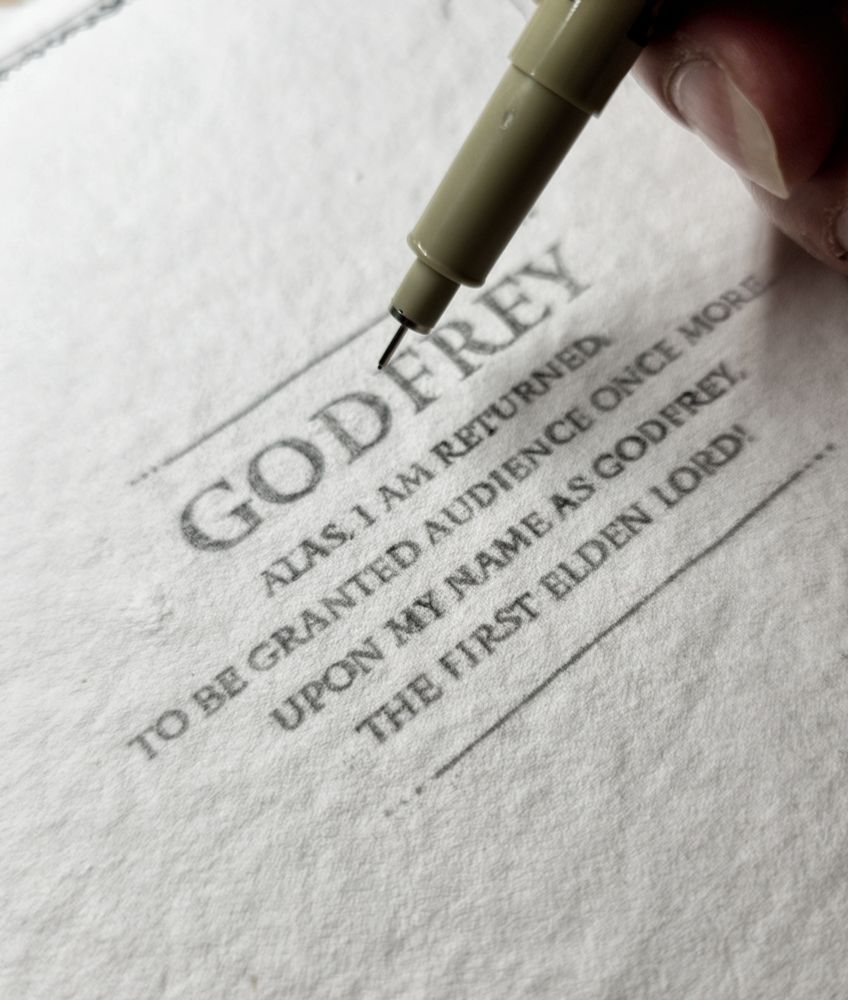 GODFREY
ALAS, I AM RETURNED,
TO BE GRANTED AUDIENCE ONCE MORE
UPON MY NAME AS GODFREY,
THE FIRST ELDEN LORD!